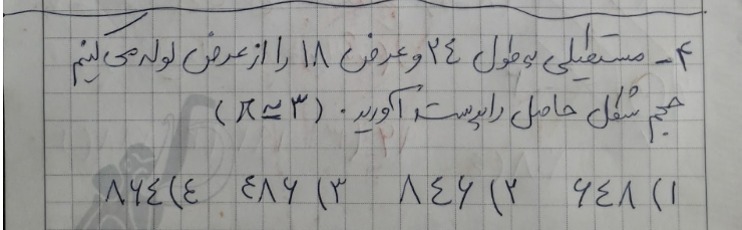 ۴ـ مستطیلی به طول ۲٤ و عرض ۱۸ را از عرض لوله می کنیم
حجم شکل حاصل را بدست آورید. (π ≃ ۳)
۱) ۶٤۸ ۲) ۸٤۶ ۳) ٤۸۶ ٤) ۸۶٤